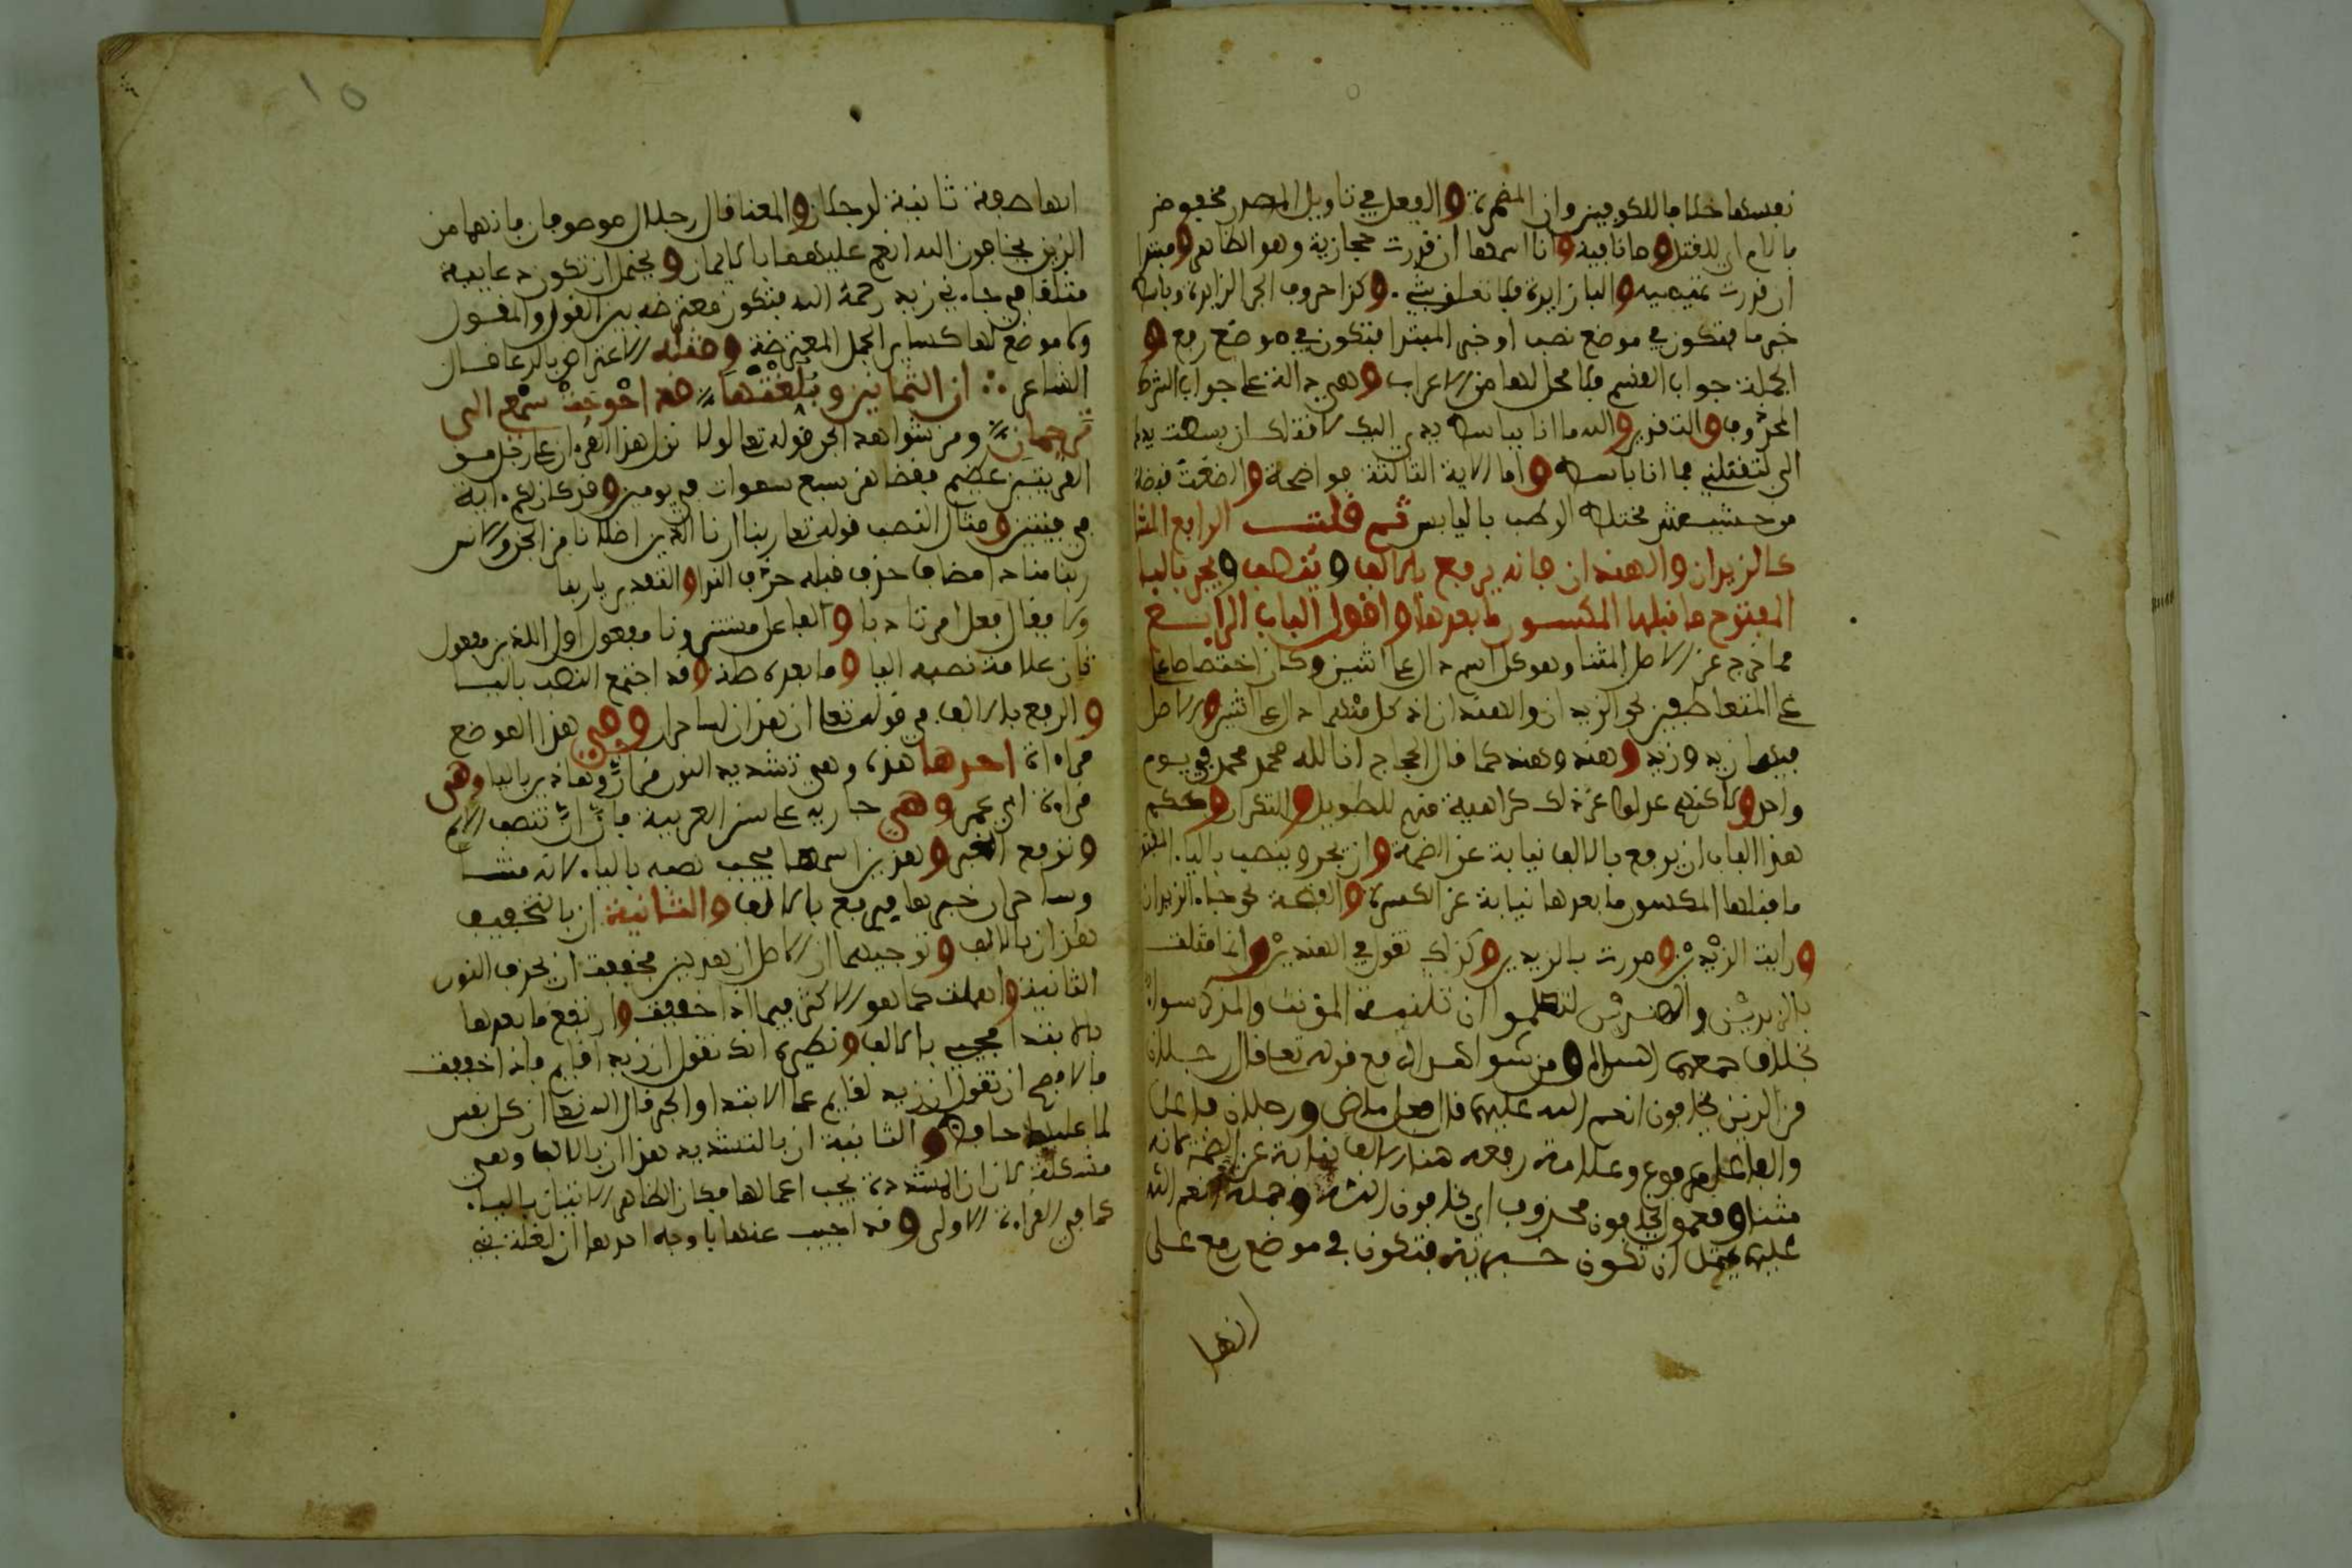 نفسها خلافا للكوفيين وان المضمرة والفعل في تاويل المصدر مخفوض
باللام اي للقتل وما نافية وانا اسمها ان قدرت حجازية وهو الظاهر ومبتدا
ان قدرت تميمية والبا زايدة فلا تتعلق بشيء وكذا حروف الجر الزايدة وباسط
خبر ما فتكون في موضع نصب او خبر المبتدا فتكون في موضع رفع و
الجملة جواب القسم فلا محل لها من الاعراب وهي دالة على جواب الشرط
المحذوف والتقدير والله ما انا بباسط يدي اليك لاقتلك ان بسطت يدك
الي لتقتلني فما انا باسط واما الاية الثالثة فواضحة والضغث قبضة
من حشيش مختلط الرطب باليابس ثم قلت الرابع المثنا
كالزيدان والهندان فانه يرفع بالالف وينصب ويجر باليا
المفتوح ما قبلها المكسور ما بعدها واقول الباب الرابع
مما خرج عن الاصل المثنا وهو كل اسم دال على اثنين وكان اختصاصا
للمتعاطفين نحو الزيدان والهندان اذ كل منهما دال على اثنين والاصل
فيهما زيد وزيد وهند وهند كما قال الحجاج انا لله محمد ومحمد في يوم
واحد ولاكنهم عدلوا عن ذلك كراهية منهم للتطويل والتكرار وحكم
هذا الباب ان يرفع بالالف نيابة عن الضمة وان يجر وينصب باليا المفتوح
ما قبلها المكسور ما بعدها نيابة عن الكسرة والفتحة نحو جاء الزيدان
ورايت الزيدين ومررت بالزيدين وكذلك تقول في الهندين وانما مثلت
بالزيدين والهندين لتعلموا ان تثنية المؤنث والمذكر سواء
بخلاف جمعهما السالم ومن شواهد الرفع قوله تعا قال رجلان
من الذين يخافون انعم الله عليهما قال فعل ماض ورجلان فاعل
والفاعل مرفوع وعلامة رفعه هنا الالف نيابة عن الضمة لانه
مثنا ومفعول يخافون محذوف اي يخافون الله وجملة انعم الله
عليهما يحتمل ان تكون خبرية فتكون في موضع رفع على
انها
١٥
انها صفة ثانية لرجلان والمعنا قال رجلان موصوفان بانهما من
الذين يخافون الله انعم عليهما بالايمان ويحتمل ان تكون دعايية
مثلها في جاءني زيد رحمه الله فتكون معترضة بين القول والمقول
ولا موضع لها كساير الجمل المعترضة ومثله الاعتراض بالدعا قال
الشاعر ان الثمانين وبلغتها قد احوجت سمعي الى
ترجمان ومن شواهد الجر قوله تعا لولا نزل هذا القرءان على رجل من
القريتين عظيم فقضاهن سبع سموات في يومين وقد كان لكم ءاية
في فيتين ومثال النصب قوله تعا ربنا ارنا الذين اضلانا من الجن والانس
ربنا منادا مضاف حذف قبله حرف الندا والتقدير يا ربنا
ولا يقال فعل امر تادبا والفاعل مستتر ونا مفعول اول الذين مفعول
ثان علامة نصبه اليا وما بعده صلة وقد اجتمع النصب باليا
والرفع بالالف في قوله تعا ان هذان لساحران وفي هذا الموضع
قراءات احدها هذه وهي تشديد النون من ان وهاذين باليا وهي
قراءة ابي عمرو وهي جارية على سنن العربية فان ان تنصب الاسم
وترفع الخبر وهذين اسمها فيجب نصبه بالياء لانه مثنا
وساحران خبرها فيرفع بالالف والثانية ان بالتخفيف
هذان بالالف وتوجيهها ان الاصل ان هذين فخففت ان بحذف النون
الثانية واهملت كما هو الاكثر فيها اذا خففت وارتفع ما بعدها
بالابتدا فجيء بالالف ونظيره انك تقول ان زيدا قايم فاذا خففت
فالافصح ان تقول ان زيد لقايم على الابتدا والخبر قال الله تعا ان كل نفس
لما عليها حافظ والثالثة ان بالتشديد هذان بالالف وهي
مشكلة لان ان المشددة يجب اعمالها فكان الظاهر الاتيان بالياء
كما في القراءة الاولى وقد اجيب عنها باوجه احدها ان لغة بني